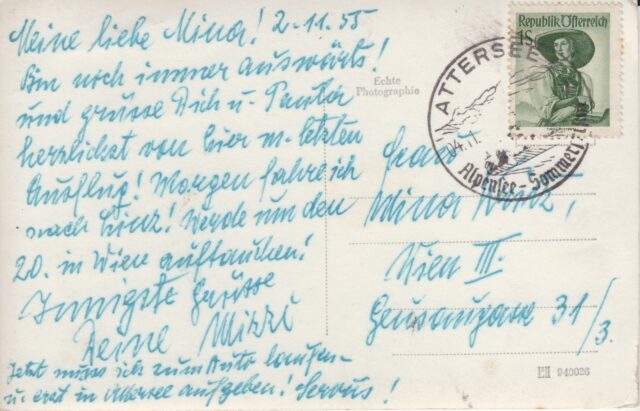 Meine liebe Mina! 2.11.55
Bin noch immer auswärts!
und grüsse Dich u.
herzlichst von hier m. letzten
Ausflug! Morgen fahre ich
nach Linz! Werde um den
20. in Wien auftauchen!
Innigste Grüsse
Deine Mizzi
Jetzt muss ich zum Auto laufen
u erst in Attersee aufgeben! Servus!
Echte
Photographie
Republik Österreich
1S
ATTERSEE
Alpensee-Sommerfr
Frau
Mina
Wien III.
Geusaugasse 31/3.
940026